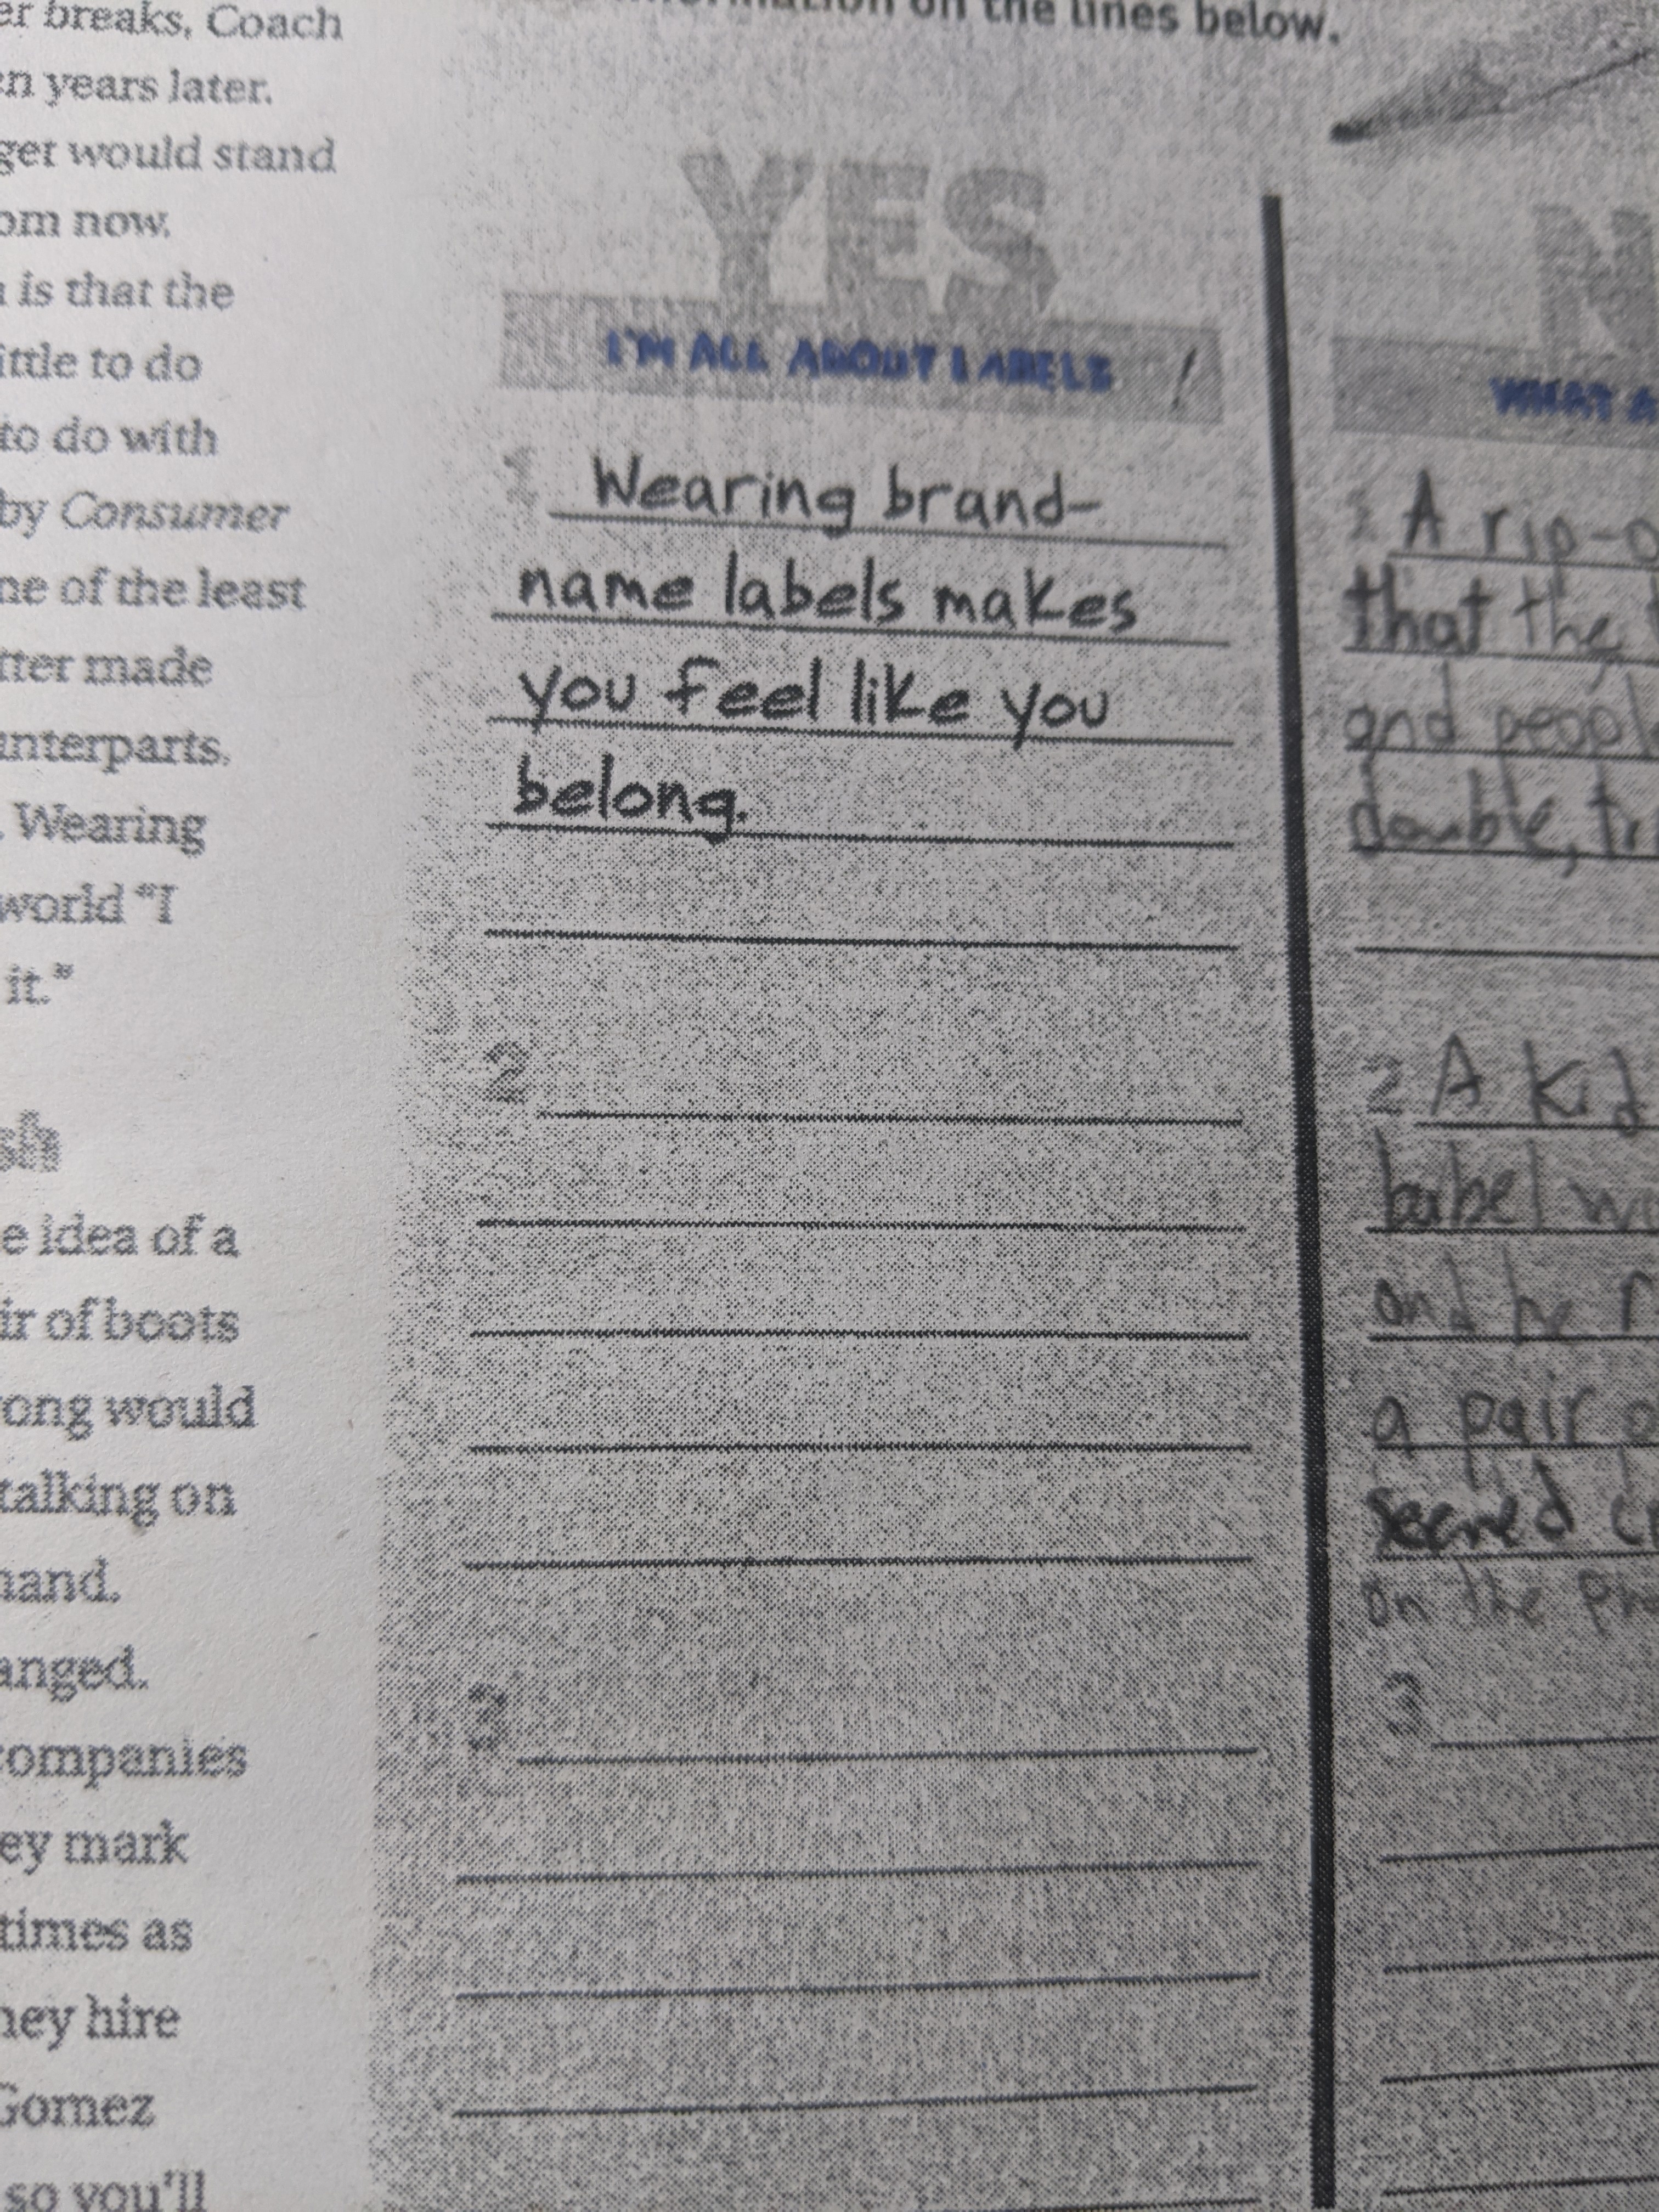 er breaks, Coach
en years later.
get would stand
om now.
is that the
ittle to do
to do with
by Consumer
ne of the least
tter made
unterparts.
. Wearing
world "I
it."
e idea of a
ir of boots
ong would
talking on
hand.
anged.
companies
ey mark
times as
hey hire
Gomez
so you'll
information on the lines below.
YES
I'M ALL ABOUT LABELS !
1 Wearing brand-
name labels makes
you feel like you
belong.
2
3
N
WHAT A
1 A rip-o
that the
and peopl
double, tri
2 A kid
babel wo
and he r
a pair o
on the pho
3